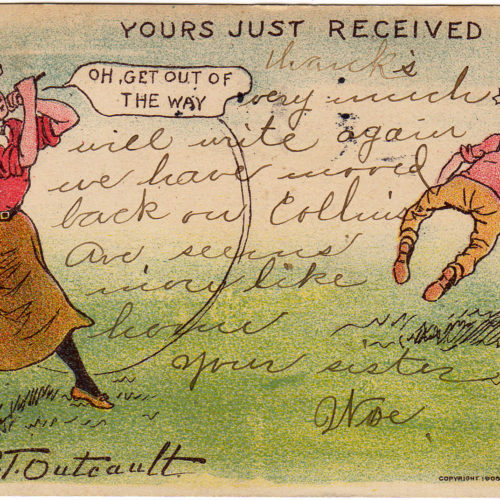 YOURS JUST RECEIVED
OH, GET OUT OF
THE WAY
thanks
very much
will write again
we have moved
back on Collins
Ave seems
more like
home
Your sister
Noe
.T. Outcault.
COPYRIGHT 190